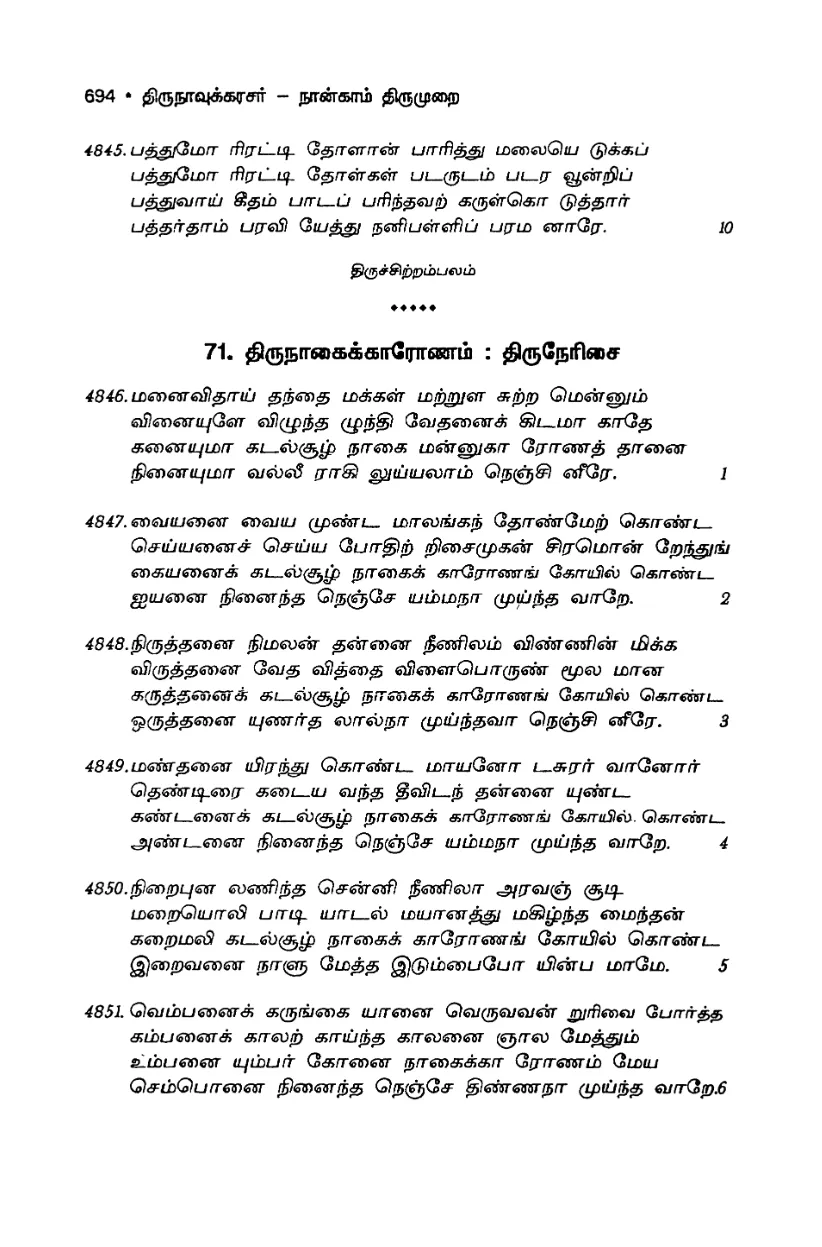 694 • திருநாவுக்கரசர் – நான்காம் திருமுறை
4845. பத்துமோ ரிரட்டி தோளான் பாரித்து மலையெ டுக்கப்
பத்துமோ ரிரட்டி தோள்கள் படருடம் படர வூன்றிப்
பத்துவாய் கீதம் பாடப் பரிந்தவற் கருள்கொ டுத்தார்
பத்தர்தாம் பரவி யேத்து நனிபள்ளிப் பரம னாரே. 10
திருச்சிற்றம்பலம்
♦♦♦♦♦
71. திருநாகைக்காரோணம் : திருநேரிசை
4846. மனைவிதாய் தந்தை மக்கள் மற்றுள சுற்ற மென்னும்
வினையுளே விழுந்த ழுந்தி வேதனைக் கிடமா காதே
கனையுமா கடல்சூழ் நாகை மன்னுகா ரோணத் தானை
நினையுமா வல்லீ ராகி லுய்யலாம் நெஞ்சி னீரே. 1
4847. வையனை வைய முண்ட மாலங்கந் தோண்மேற் கொண்ட
செய்யனைச் செய்ய போதிற் றிசைமுகன் சிரமொன் றேந்துங்
கையனைக் கடல்சூழ் நாகைக் காரோணங் கோயில் கொண்ட
ஐயனை நினைந்த நெஞ்சே யம்மநா முய்ந்த வாறே. 2
4848. நிருத்தனை நிமலன் தன்னை நீணிலம் விண்ணின் மிக்க
விருத்தனை வேத வித்தை விளைபொருண் மூல மான
கருத்தனைக் கடல்சூழ் நாகைக் காரோணங் கோயில் கொண்ட
ஒருத்தனை யுணர்த லால்நா முய்ந்தவா நெஞ்சி னீரே. 3
4849. மண்தனை யிரந்து கொண்ட மாயனோ டசுரர் வானோர்
தெண்டிரை கடைய வந்த தீவிடந் தன்னை யுண்ட
கண்டனைக் கடல்சூழ் நாகைக் காரோணங் கோயில் கொண்ட
அண்டனை நினைந்த நெஞ்சே யம்மநா முய்ந்த வாறே. 4
4850. நிறைபுன லணிந்த சென்னி நீணிலா அரவஞ் சூடி
மறையொலி பாடி யாடல் மயானத்து மகிழ்ந்த மைந்தன்
கறைமலி கடல்சூழ் நாகைக் காரோணங் கோயில் கொண்ட
இறைவனை நாளு மேத்த இடும்பைபோ யின்ப மாமே. 5
4851. வெம்பனைக் கருங்கை யானை வெருவவன் றுரிவை போர்த்த
கம்பனைக் காலற் காய்ந்த காலனை ஞால மேத்தும்
உம்பனை யும்பர் கோனை நாகைக்கா ரோணம் மேய
செம்பொனை நினைந்த நெஞ்சே திண்ணநா முய்ந்த வாறே. 6